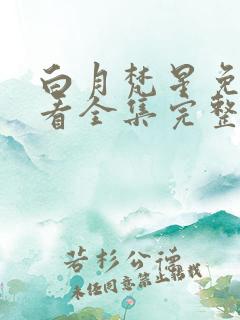 白月梵星免
看全集完整
若杉公德
未经同意禁止转载